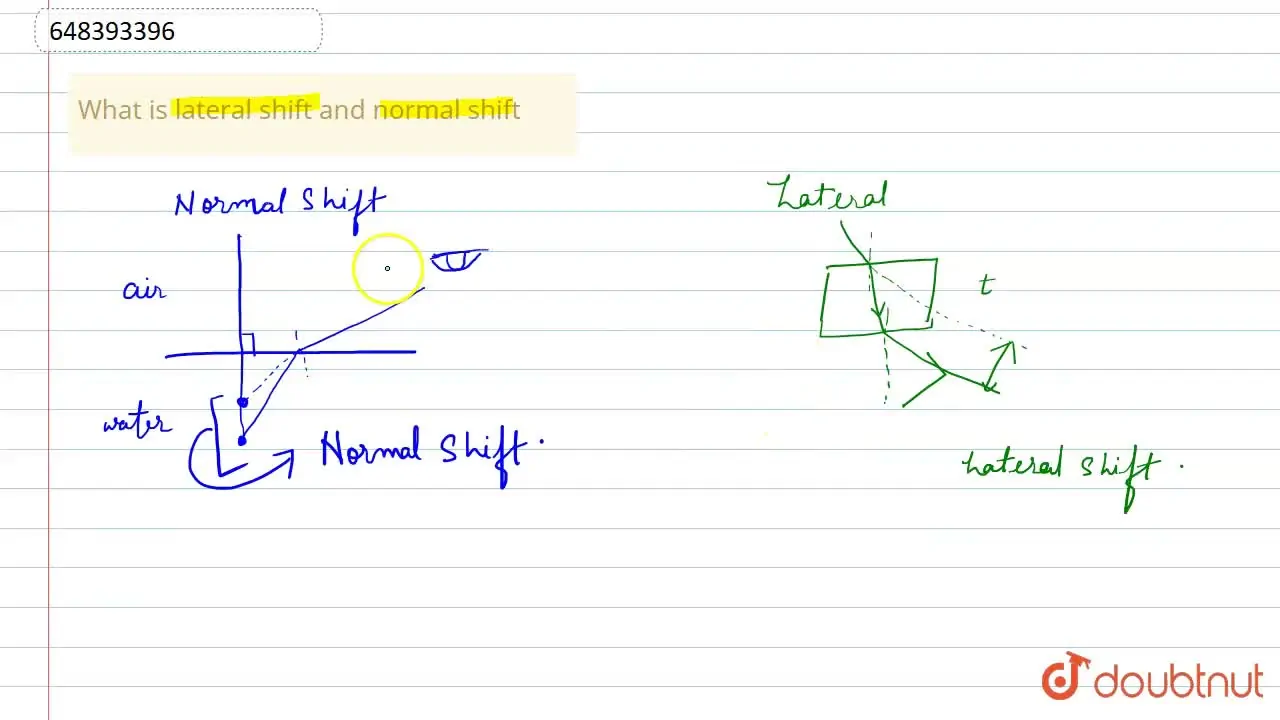 648393396
What is lateral shift and normal shift
Normal Shift
air
water
Normal Shift.
Lateral
t
Lateral Shift.
doubtnut